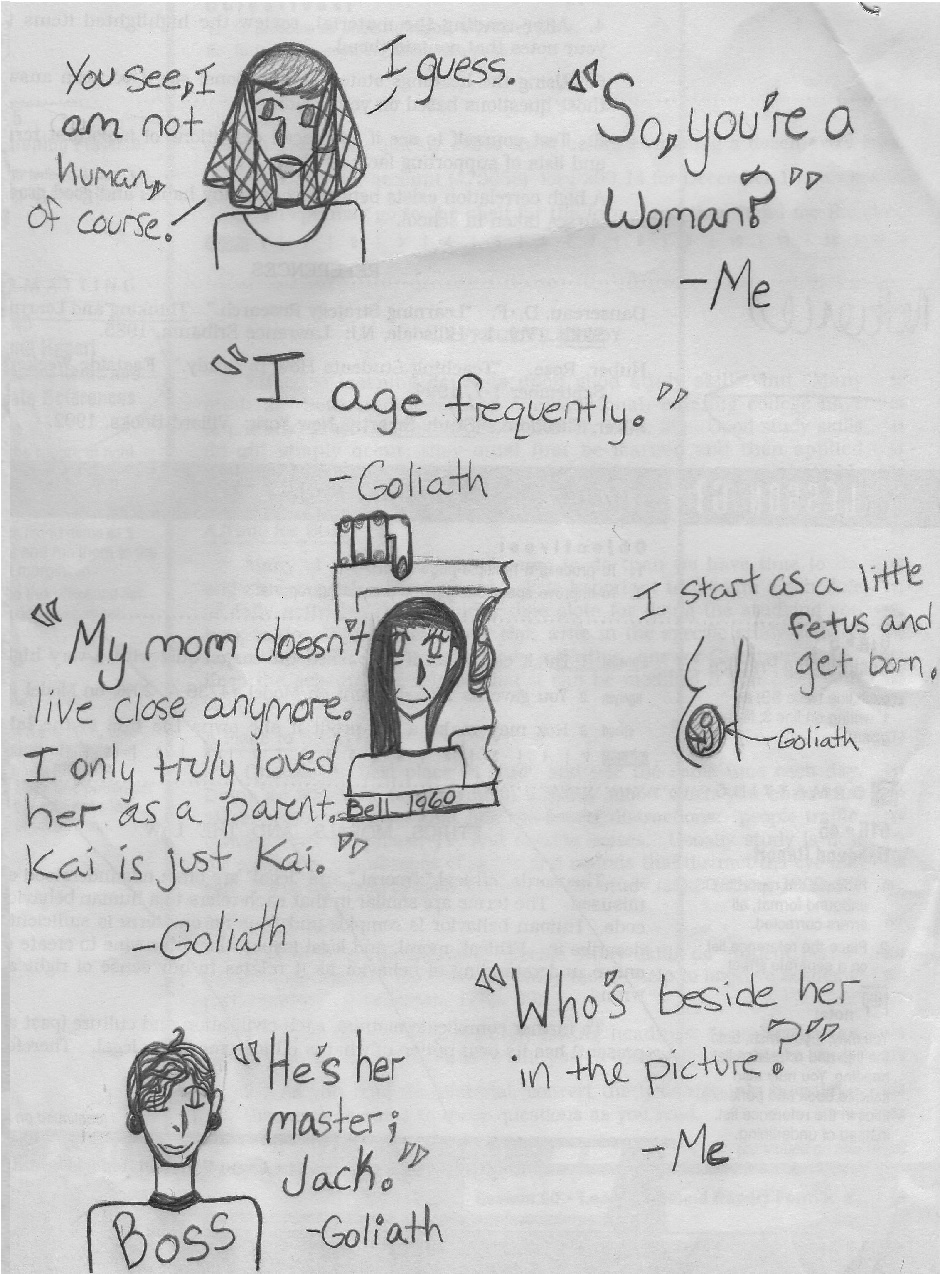 You see, I
am not
human,
of course.
I guess.
"So, you're a
woman?"
-Me
"I age frequently."
-Goliath
"My mom doesn't
live close anymore.
I only truly loved
her as a parent.
Kai is just Kai."
-Goliath
Bell 1960
I start as a little
fetus and
get born.
Goliath
"Who's beside her
in the picture?"
-Me
"He's her
master;
Jack."
-Goliath
BOSS